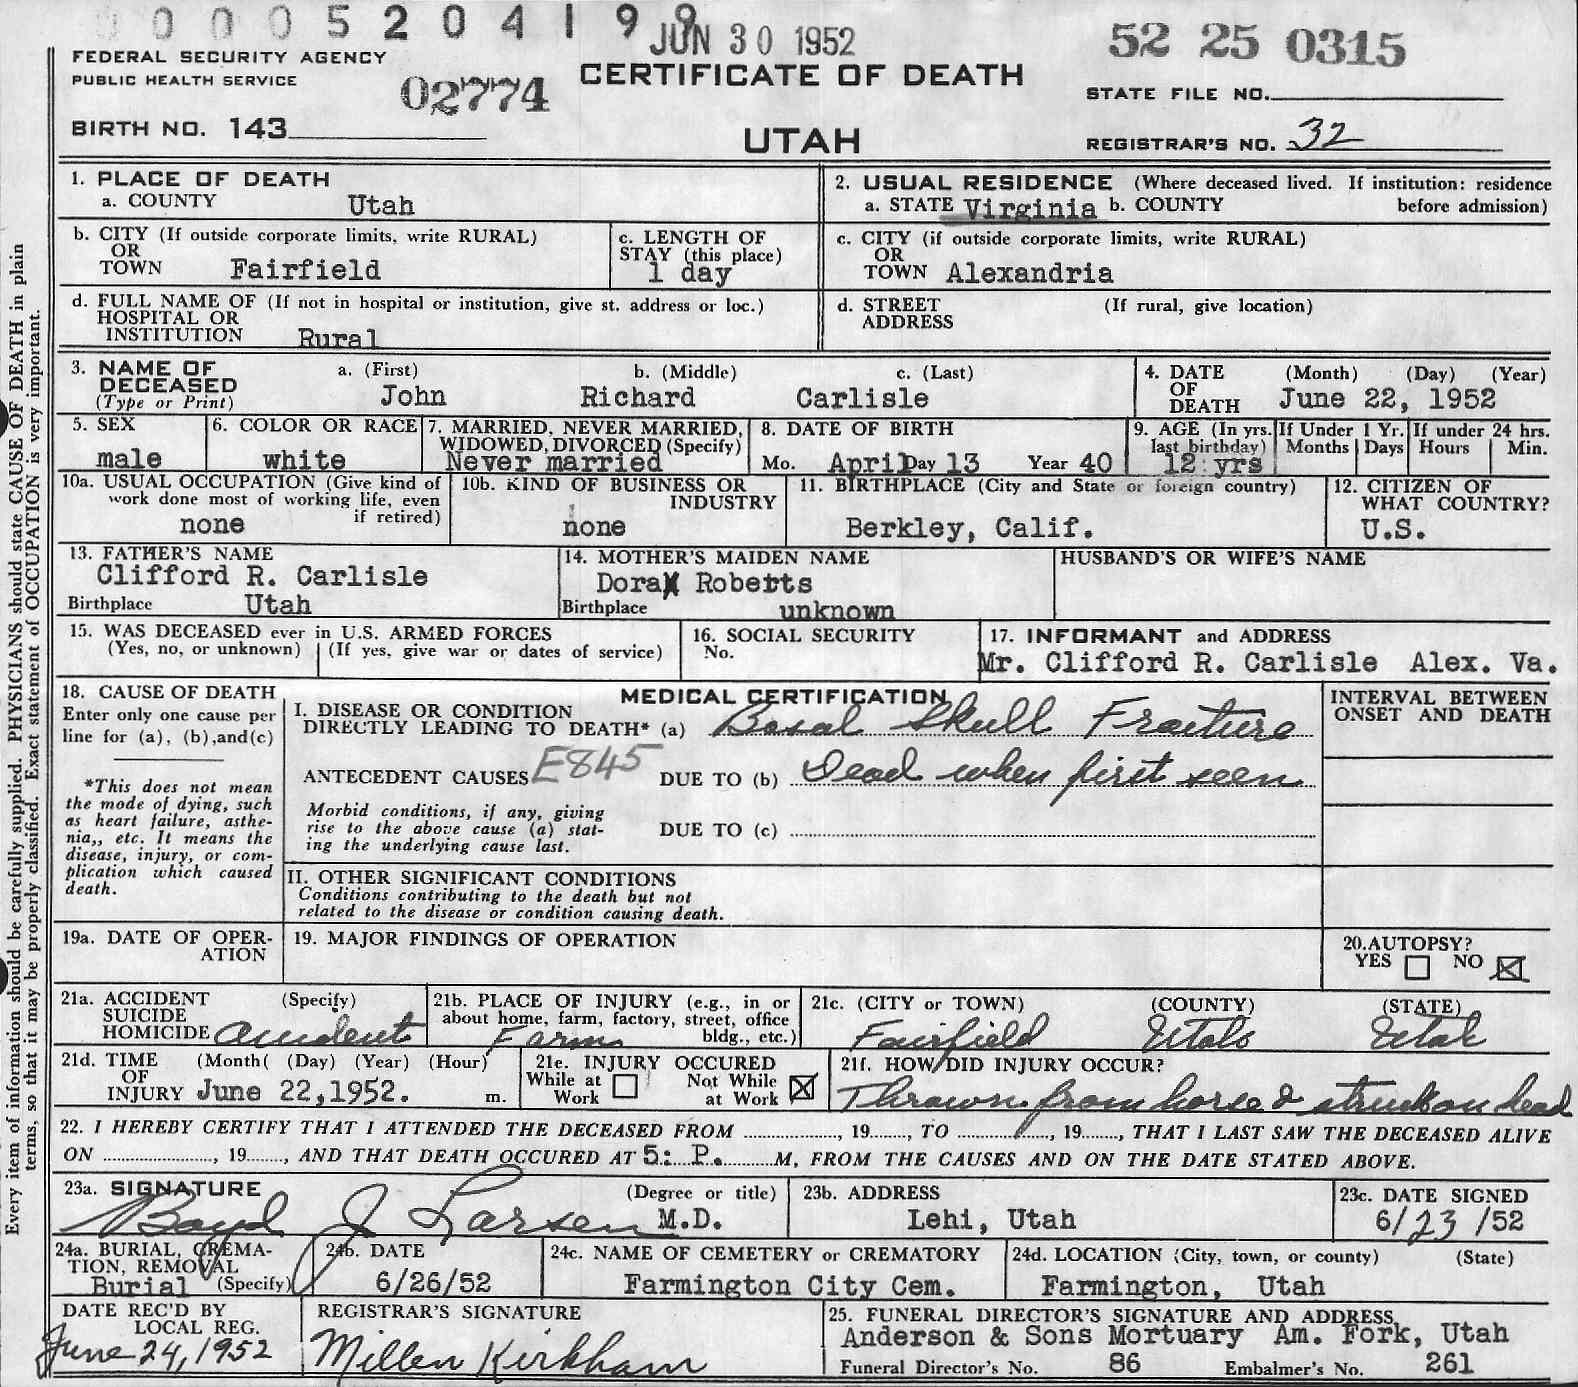 0 0 0 5 2 0 4 1 9 9
JUN 30 1952
52 25 0315
FEDERAL SECURITY AGENCY
PUBLIC HEALTH SERVICE
02774
CERTIFICATE OF DEATH
STATE FILE NO.
BIRTH NO. 143
UTAH
REGISTRAR'S NO. 32
1. PLACE OF DEATH
a. COUNTY Utah
2. USUAL RESIDENCE (Where deceased lived. If institution: residence
a. STATE Virginia b. COUNTY before admission)
b. CITY (If outside corporate limits, write RURAL)
OR
TOWN Fairfield
c. LENGTH OF
STAY (this place)
1 day
c. CITY (if outside corporate limits, write RURAL)
OR
TOWN Alexandria
d. FULL NAME OF (If not in hospital or institution, give st. address or loc.)
HOSPITAL OR
INSTITUTION Rural
d. STREET (If rural, give location)
ADDRESS
3. NAME OF
DECEASED
(Type or Print)
a. (First) b. (Middle) c. (Last)
John Richard Carlisle
4. DATE (Month) (Day) (Year)
OF
DEATH June 22, 1952
5. SEX
male
6. COLOR OR RACE
white
7. MARRIED, NEVER MARRIED,
WIDOWED, DIVORCED (Specify)
Never married
8. DATE OF BIRTH
Mo. April Day 13 Year 40
9. AGE (In yrs.
last birthday)
12 yrs
If Under 1 Yr.
Months Days
If under 24 hrs.
Hours Min.
10a. USUAL OCCUPATION (Give kind of
work done most of working life, even
if retired)
none
10b. KIND OF BUSINESS OR
INDUSTRY
none
11. BIRTHPLACE (City and State or foreign country)
Berkley, Calif.
12. CITIZEN OF
WHAT COUNTRY?
U.S.
13. FATHER'S NAME
Clifford R. Carlisle
Birthplace Utah
14. MOTHER'S MAIDEN NAME
Dora Roberts
Birthplace unknown
HUSBAND'S OR WIFE'S NAME
15. WAS DECEASED ever in U.S. ARMED FORCES
(Yes, no, or unknown) (If yes, give war or dates of service)
16. SOCIAL SECURITY
No.
17. INFORMANT and ADDRESS
Mr. Clifford R. Carlisle Alex. Va.
18. CAUSE OF DEATH
Enter only one cause per
line for (a), (b),and(c)
*This does not mean
the mode of dying, such
as heart failure, asthe-
nia,, etc. It means the
disease, injury, or com-
plication which caused
death.
MEDICAL CERTIFICATION
I. DISEASE OR CONDITION
DIRECTLY LEADING TO DEATH* (a) Basal Skull Fracture
ANTECEDENT CAUSES E845 DUE TO (b) Dead when first seen
Morbid conditions, if any, giving
rise to the above cause (a) stat-
ing the underlying cause last.
DUE TO (c)
II. OTHER SIGNIFICANT CONDITIONS
Conditions contributing to the death but not
related to the disease or condition causing death.
INTERVAL BETWEEN
ONSET AND DEATH
19a. DATE OF OPER-
ATION
19. MAJOR FINDINGS OF OPERATION
20.AUTOPSY?
YES NO
21a. ACCIDENT (Specify)
SUICIDE
HOMICIDE accident
21b. PLACE OF INJURY (e.g., in or
about home, farm, factory, street, office
bldg., etc.)
Farm
21c. (CITY or TOWN) (COUNTY) (STATE)
Fairfield Utah Utah
21d. TIME (Month( (Day) (Year) (Hour)
OF
INJURY June 22,1952. m.
21e. INJURY OCCURED
While at Not While
Work at Work
21f. HOW DID INJURY OCCUR?
Thrown from horse & struck on head
22. I HEREBY CERTIFY THAT I ATTENDED THE DECEASED FROM , 19 , TO , 19 , THAT I LAST SAW THE DECEASED ALIVE
ON , 19 , AND THAT DEATH OCCURED AT 5: P. M, FROM THE CAUSES AND ON THE DATE STATED ABOVE.
23a. SIGNATURE (Degree or title)
Boyd J Larsen M.D.
23b. ADDRESS
Lehi, Utah
23c. DATE SIGNED
6/23/52
24a. BURIAL, CREMA-
TION, REMOVAL
Burial (Specify)
24b. DATE
6/26/52
24c. NAME OF CEMETERY or CREMATORY
Farmington City Cem.
24d. LOCATION (City, town, or county) (State)
Farmington, Utah
DATE REC'D BY
LOCAL REG.
June 24, 1952
REGISTRAR'S SIGNATURE
Millen Kirkham
25. FUNERAL DIRECTOR'S SIGNATURE AND ADDRESS
Anderson & Sons Mortuary Am. Fork, Utah
Funeral Director's No. 86 Embalmer's No. 261
Every item of information should be carefully supplied. PHYSICIANS should state CAUSE OF DEATH in plain
terms, so that it may be properly classified. Exact statement of OCCUPATION is very important.